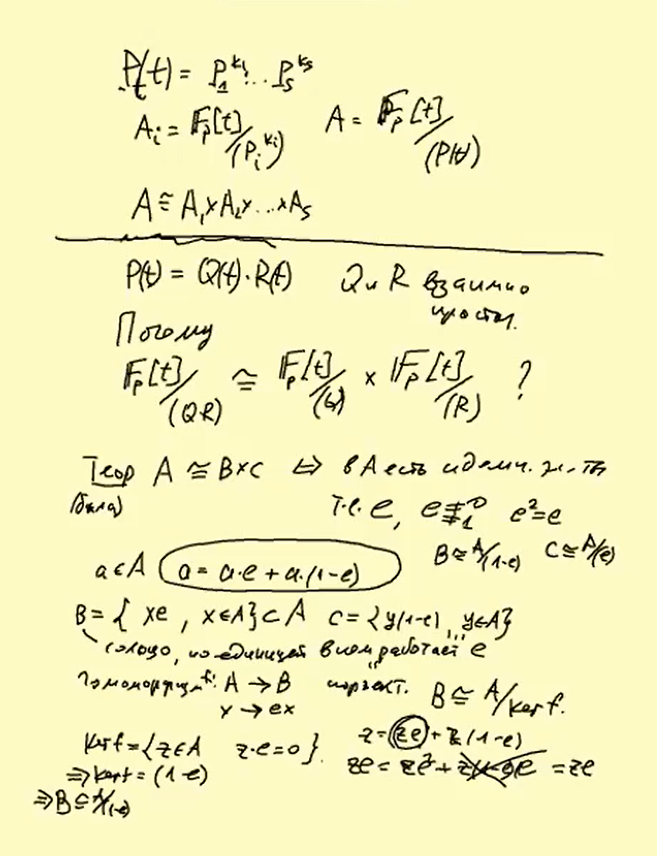 P(t) = P₁^{k₁} ... P_s^{k_s}
A_i = F_p[t]/(P_i^{k_i})   A = F_p[t]/(P(t))
A ≅ A₁×A₂×...×A_s
P(t) = Q(t)·R(t)   Q и R взаимно
просты.
Почему
F_p[t]/(QR) ≅ F_p[t]/(Q) × F_p[t]/(R) ?
Теор A ≅ B×C ⇔ в A есть идемп. эл-ты
(была)   т.е. e, e≠0,1   e²=e
B≅A/(1-e)   C≅A/(e)
a∈A   a = a·e + a·(1-e)
B = { xe , x∈A} ⊂ A   C = {y(1-e), y∈A}
кольцо, но единицей в нем работает "e"
Гомоморфизм f: A → B   сюръект.   B ≅ A/Ker f.
x → ex
Ker f = {z∈A   z·e=0}.   z = ze + z(1-e)
⇒ Ker f = (1-e)   ze = ze² + z(1-e)e = ze
⇒ B ≅ A/(1-e)